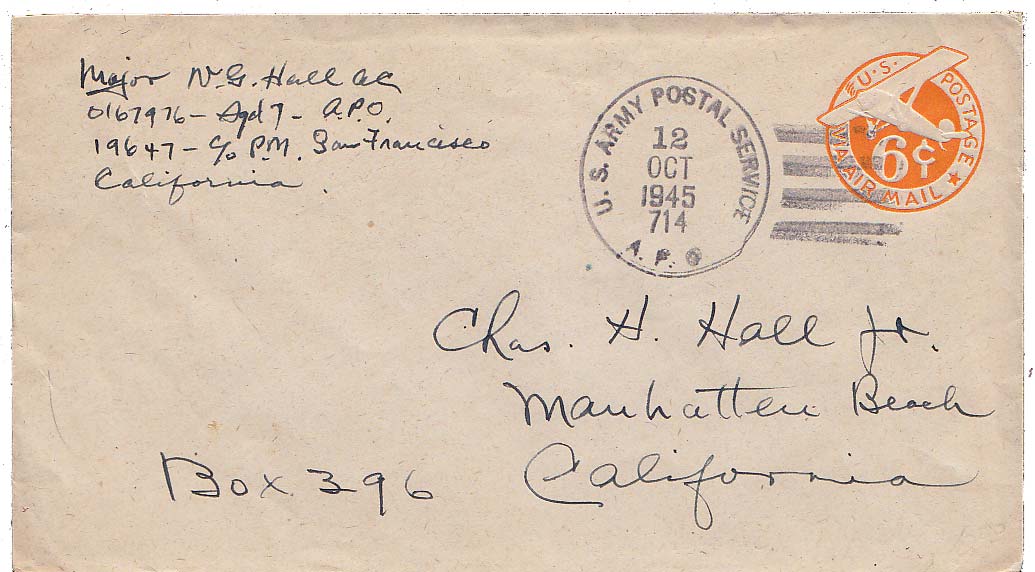 Major N. G. Hall AC
0167976 - Sqd 7 - A.P.O.
19647 - c/o P.M. San Francisco
California.
U. S. ARMY POSTAL SERVICE
12
OCT
1945
714
A. P. O
U.S. POSTAGE
6¢
VIA AIR MAIL
Chas. H. Hall Jr.
Manhatten Beach
California
Box 396